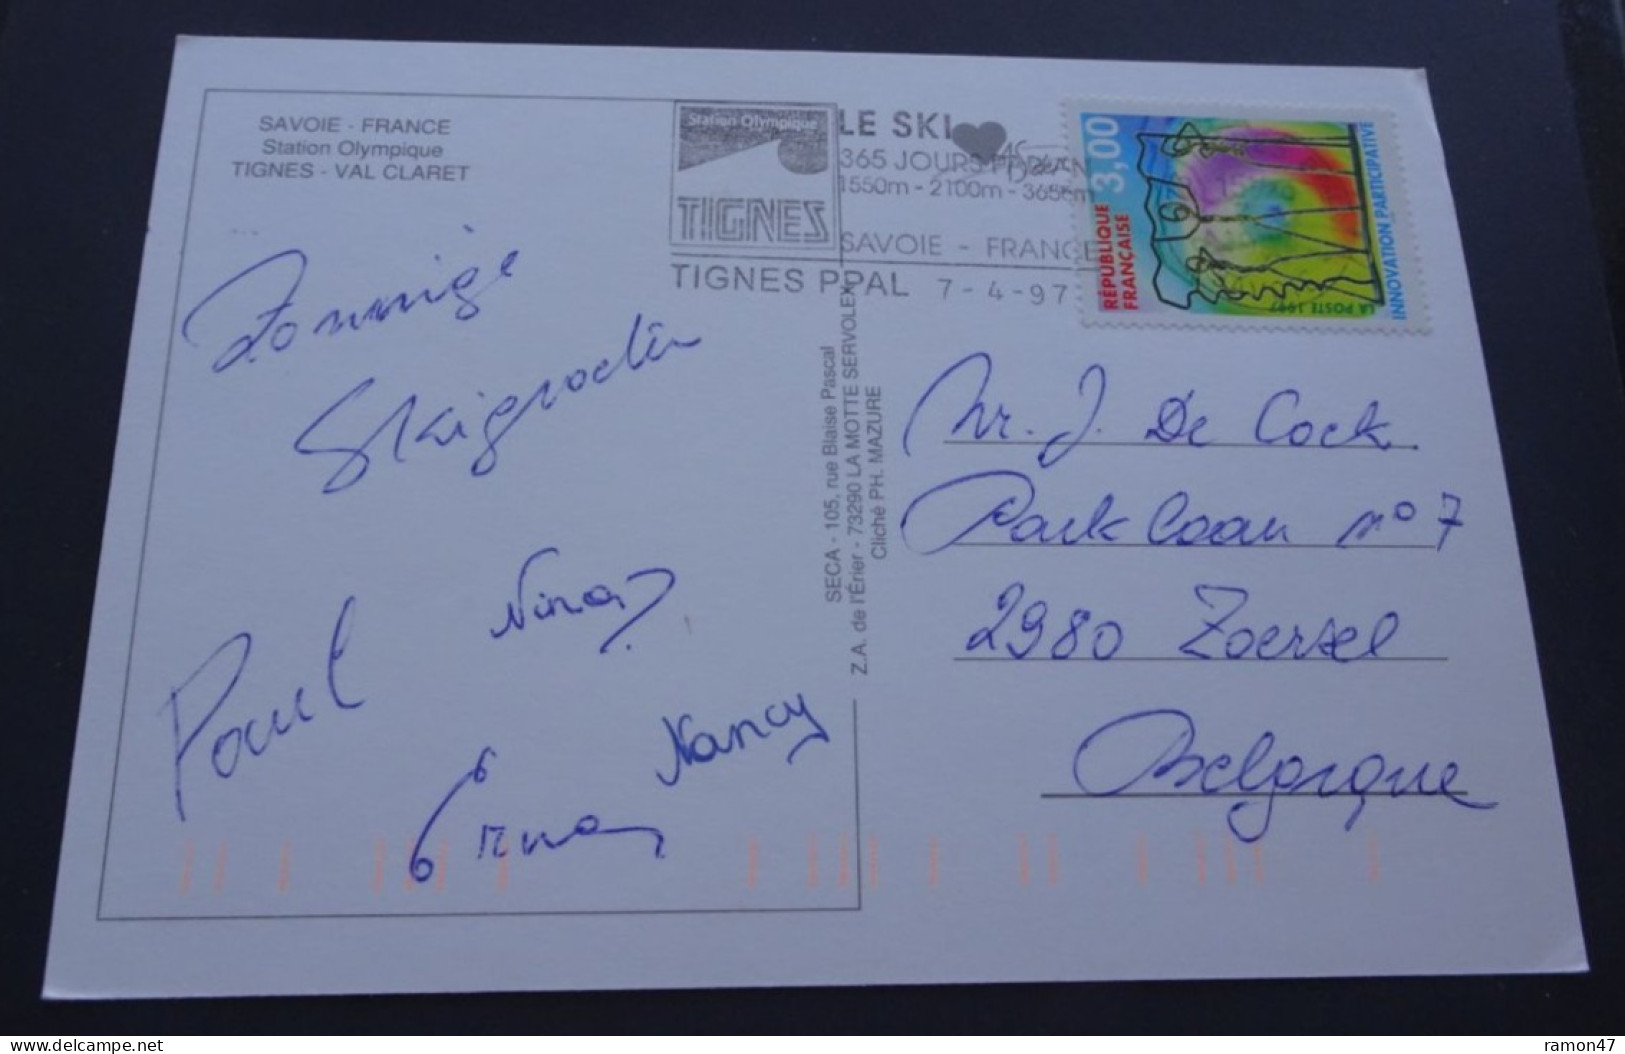 SAVOIE - FRANCE
Station Olympique
TIGNES - VAL CLARET
Zonnige
Skigroeten
Paul
Nina
Nancy
Erna
SECA - 105, rue Blaise Pascal
Z.A. de l'Érier - 73290 LA MOTTE SERVOLEX
Cliché PH. MAZURE
Station Olympique
TIGNES
LE SKI
365 JOURS PAR AN
1550m - 2100m - 3656m
SAVOIE - FRANCE
TIGNES PPAL 7-4-97
3,00
RÉPUBLIQUE
FRANÇAISE
LA POSTE 1997
INNOVATION PARTICIPATIVE
Mr. J. De Cock
Parklaan n° 7
2980 Zoersel
Belgique
delcampe.net
ramon47